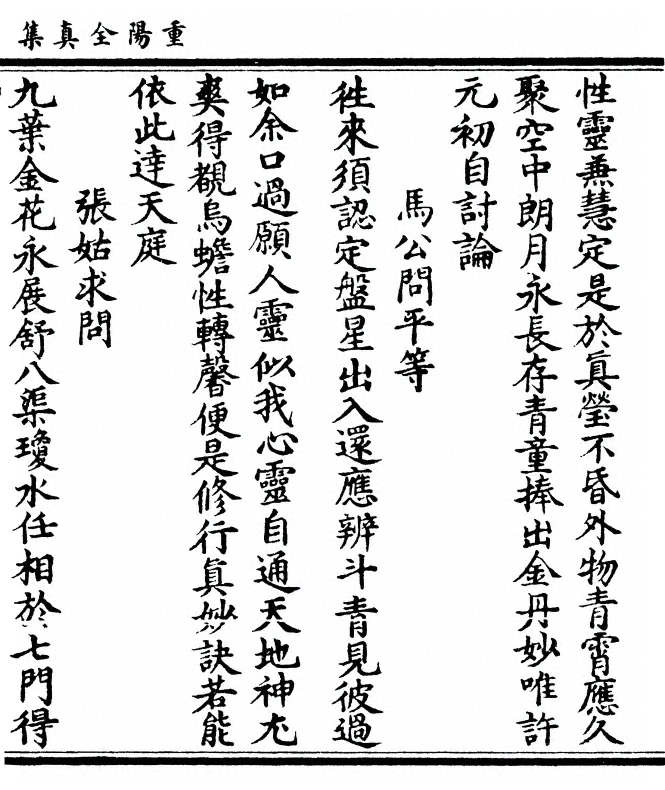 重陽全真集
性靈兼慧定是於真瑩不昏外物青霄應久
聚空中朗月永長存青童捧出金丹妙唯許
元初自討論
馬公問平等
徃來須認定盤星出入還應辨斗青見彼過
如余口過願人靈似我心靈自通天地神尤
爽得覩烏蟾性轉馨便是修行真妙訣若能
依此達天庭
張姑求問
九葉金花永展舒八渠瓊水任相於七門得